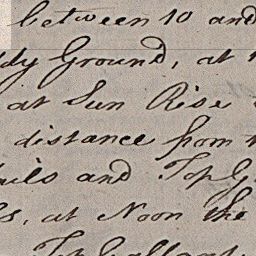 between 10 and
dy Ground, at
at Sun Rise
distance from
ails and TopG
s, at Noon the
TopGallant